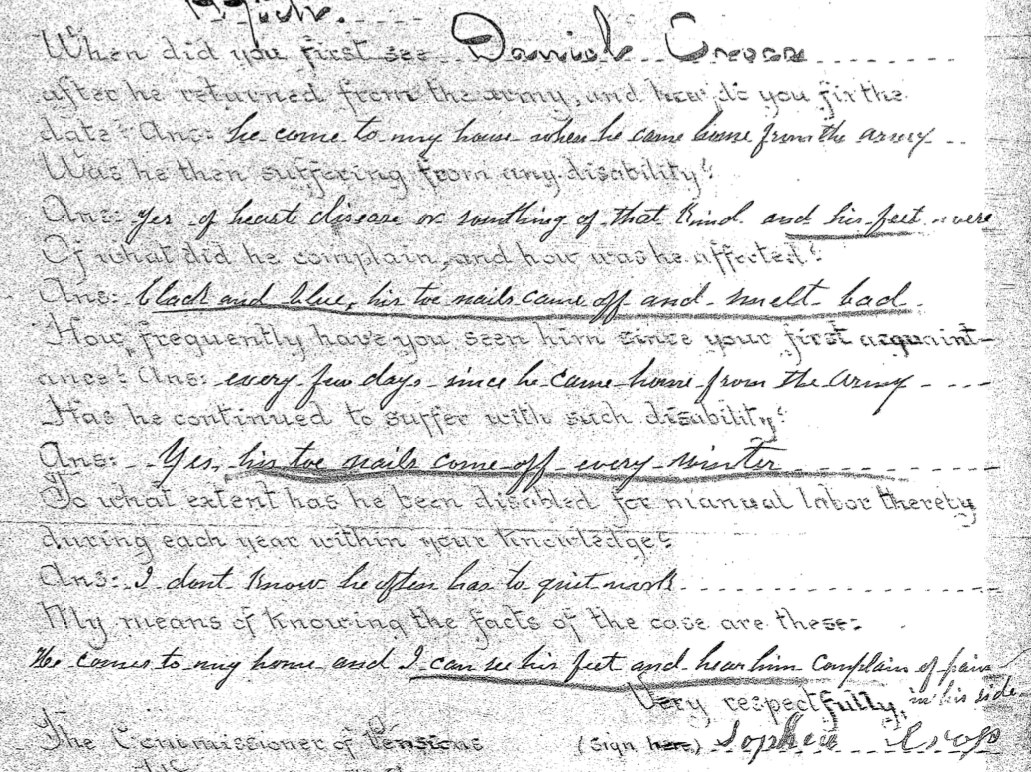 When did you first see Daniel Cross
after he returned from the army, and how do you fix the
date? Ans: he come to my house when he came home from the army
Was he then suffering from any disability?
Ans: Yes of heart disease or somthing of that kind and his feet were
Of what did he complain, and how was he affected?
Ans: black and blue, his toe nails came off and smelt bad
How frequently have you seen him since your first acquaint-
ance? Ans: every few days since he came home from the army
Has he continued to suffer with such disability?
Ans: Yes, his toe nails come off every winter
To what extent has he been disabled for manual labor thereby
during each year within your knowledge?
Ans: I dont know he often has to quit work
My means of knowing the facts of the case are these:
He comes to my home and I can see his feet and hear him complain of pain
in his side
Very respectfully,
The Commissioner of Pensions (Sign here) Sophia Cross